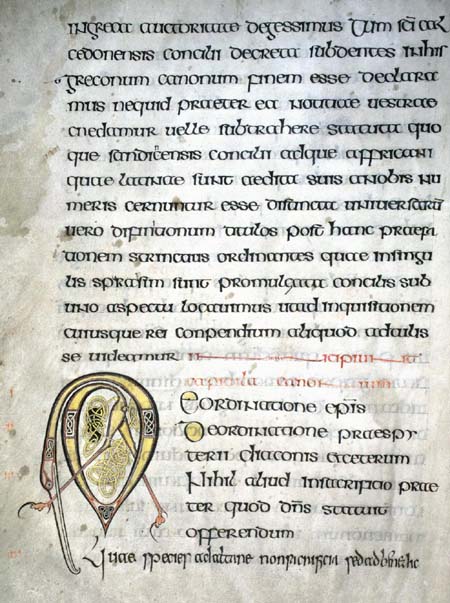 integra auctoritate degessimus Tum sci cal
cedonensis concilii decreta subdentes in his
grecorum canonum finem esse declara
mus nequid praeter ea notitiae uestrae
credamur uelle subtrahere statuta quo
que sardicensis concilii adque affricani
quae latinae sunt aedita suis anobis nu
meris cernuntur esse distincta uniuersarum
uero difinitionum titulos post hanc praefa
tionem strictius ordinantes quae insingu
lis sparsim sunt promulgata conciliis sub
uno aspectu locauimus ut ad inquisitionem
cuiusque rei conpendium aliquod adtulis
se uideamur
capitula canonum
De ordinatione epis
De ordinatione praespy
terii diaconis et ceterum
Nihil aliud in sacrificio prae
ter quod dns statuit
offerendum